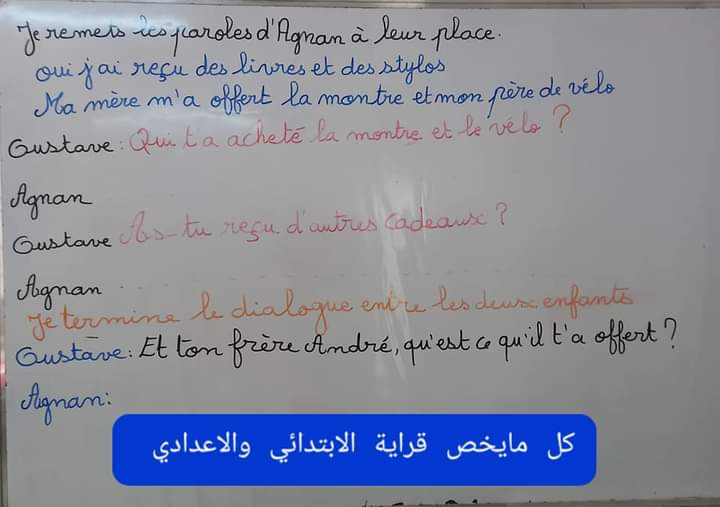 Je remets les paroles d'Agnan à leur place.
oui j'ai reçu des livres et des stylos
Ma mère m'a offert la montre et mon père de vélo
Gustave : Qui t'a acheté la montre et le vélo ?
Agnan
Gustave As-tu reçu d'autres cadeaux ?
Agnan
Je termine le dialogue entre les deux enfants
Gustave : Et ton frère André, qu'est ce qu'il t'a offert ?
Agnan :
كل مايخص قراية الابتدائي والاعدادي